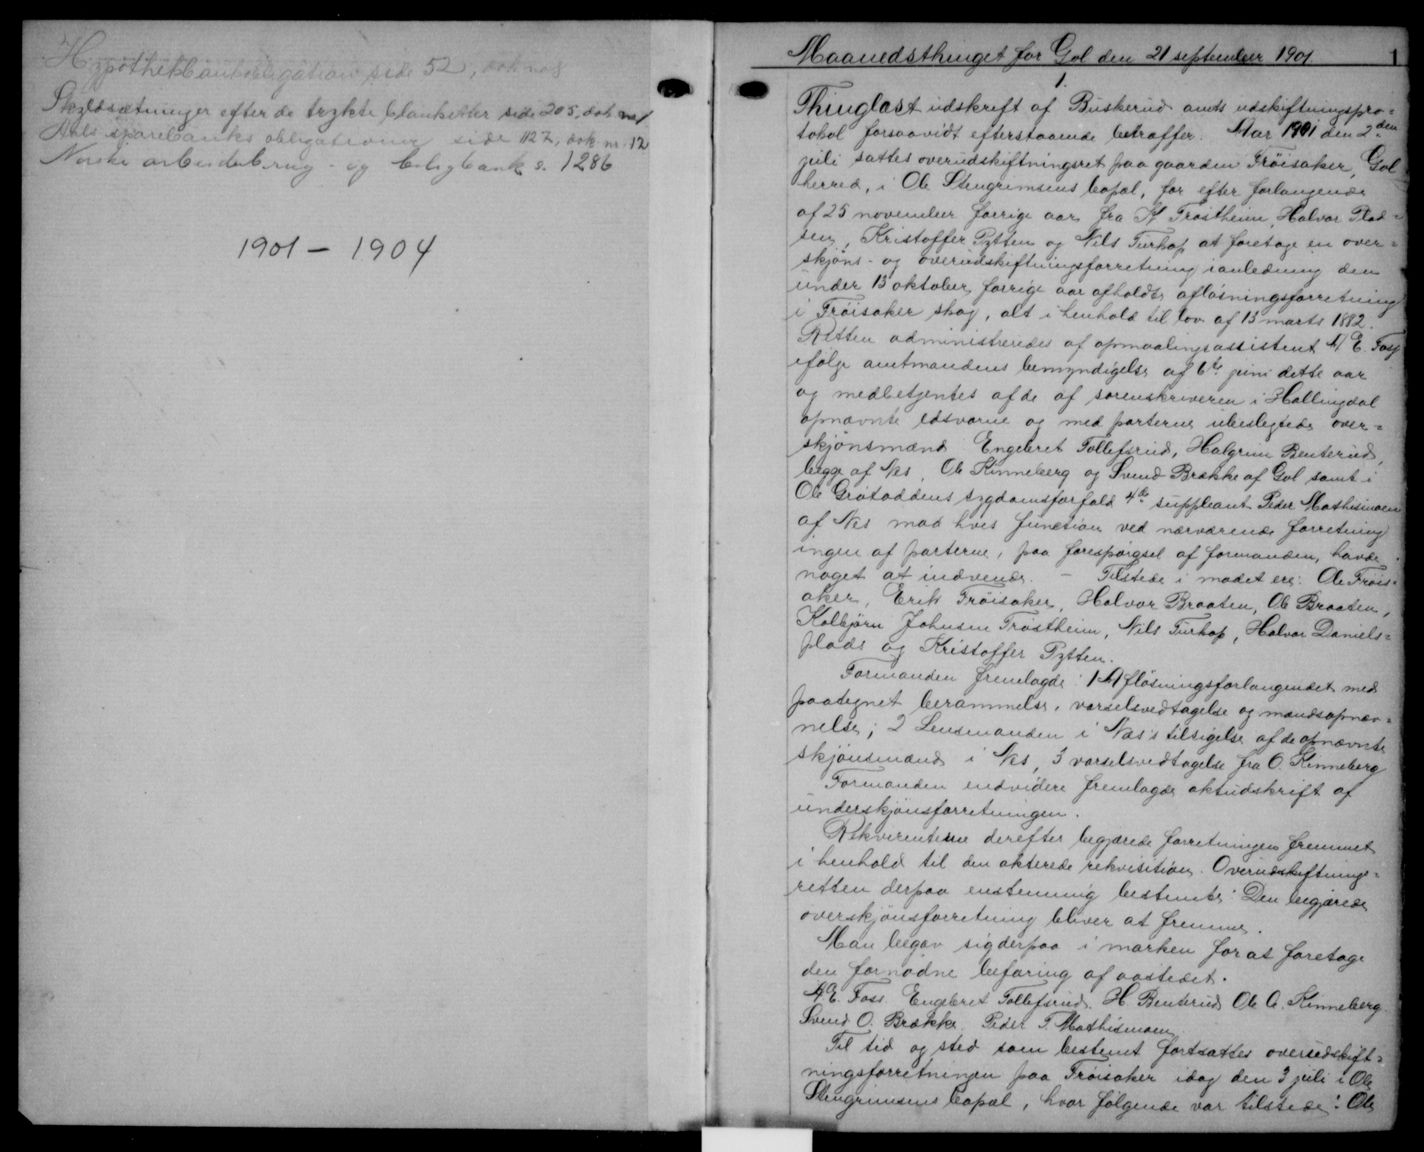 Hypothekbankobligation side 52, dok no 8
Skyldsætninger efter de trykte blanketter side 205, dok no 1
Aals sparebanks obligationer side 1127, dok nr. 12
Norske arbeiderbrug- og boligbank s. 1286
1901 – 1904
Maanedsthinget for Gol den 21 september 1901
1
1.
Thinglæst udskrift af Buskerud amts udskiftningspro-
tokol forsaavidt efterstaaende betræffer. Aar 1901 den 2den
juli sattes overudskiftningsret paa gaarden Trøisaker, Gol
herred, i Ole Stengrimsens Capal, for efter forlangende
af 25 november forrige aar fra K Trøstheim, Halvor Plad-
sen, Kristoffer Pytten og Nils Turhop at foretage en over-
skjøns- og overudskiftningsforretning i anledning den
under 13 oktober forrige aar afholdte afløsningsforretning
i Trøisaker skog, alt i henhold til lov af 13 marts 1882.
Retten administreredes af opmaalingsassistent A E. Foss
ifølge amtmandens bemyndigelse af 6te juni dette aar
og medbetjentes af de af sorenskriveren i Hallingdal
opnævnte edsvorne og med parterne ubeslegtede over-
skjønsmænd Engebret Tollefsrud, Halgrim Benterud,
begge af Nes, Ole Kinneberg og Svend Brække af Gol samt i
Ole Grøtoddens sygdomsforfald 4de suppleant Peder Mathismoen
af Nes mod hvis function ved nærværende forretning
ingen af parterne, paa forespørgsel af formanden, havde
noget at indvende. – Tilstede i mødet ere: Ole Trøis-
aker, Erik Trøisaker, Halvor Braaten, Ole Braaten,
Kolbjørn Johnsen Trøstheim, Nils Turhop, Halvor Daniels-
plads og Kristoffer Pytten.
Formanden fremlagde: 1 Afløsningsforlangendet med
paategnet berammelse, varselsvedtagelse og mandsopnæv-
nelse; 2 Lensmanden i Næs's tilsigelse af de opnævnte
skjønsmænd i Nes, 3 varselsvedtagelse fra O. Kinneberg
Formanden endvidere fremlagde aktudskrift af
underskjønsforretningen.
Rekvirenterne derefter begjærede forretningen fremmet
i henhold til den akterede rekvisition. Overudskiftnings-
retten derpaa enstemmig bestemte: Den begjærede
overskjønsforretning bliver at fremme.
Man begav sig derpaa i marken for at foretage
den fornødne befaring af aastedet.
AE. Foss Engebret Tollefsrud. H. Benterud Ole O. Kinneberg
Svend O. Brække. Peder T. Mathismoen
Til tid og sted som bestemt fortsattes overudskift-
ningsforretningen paa Trøisaker idag den 3 juli i Ole
Stengrimsens Capal, hvor følgende var tilstede: Ole